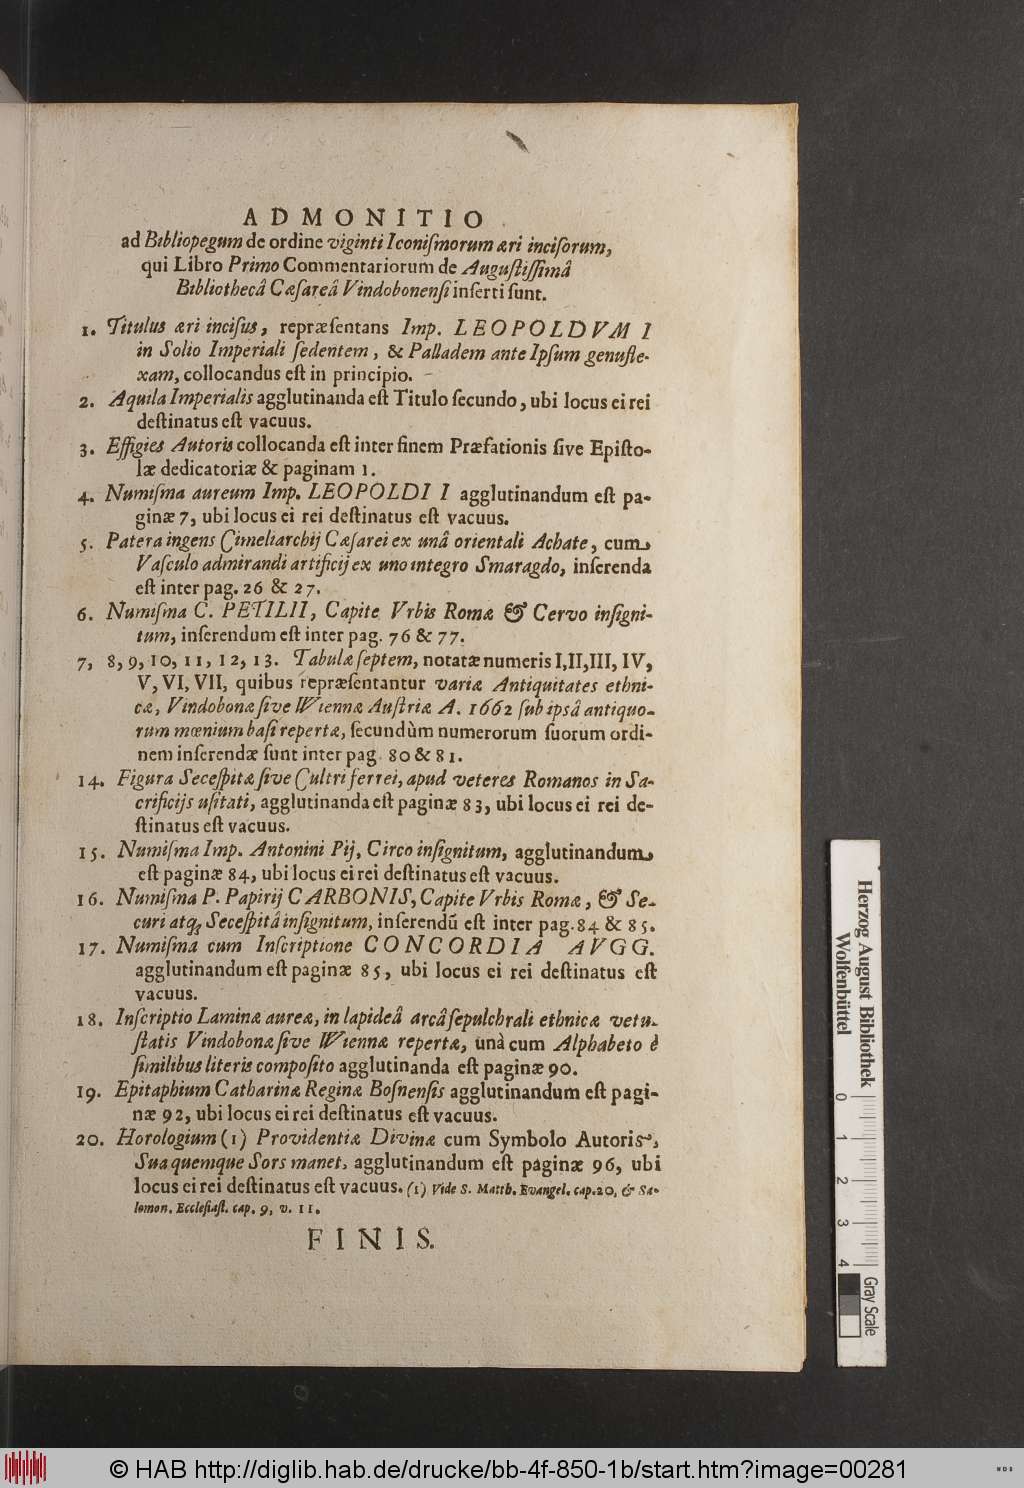 ADMONITIO
ad Bibliopegum de ordine viginti Iconiſmorum æri inciſorum,
qui Libro Primo Commentariorum de Auguſtiſſimâ
Bibliothecâ Cæſareâ Vindobonenſi inſerti ſunt.
1. Titulus æri inciſus, repræſentans Imp. LEOPOLDVM I
in Solio Imperiali ſedentem, & Palladem ante Ipſum genufle-
xam, collocandus eſt in principio.
2. Aquila Imperialis agglutinanda eſt Titulo ſecundo, ubi locus ei rei
deſtinatus eſt vacuus.
3. Effigies Autoris collocanda eſt inter finem Præfationis ſive Epiſto-
læ dedicatoriæ & paginam 1.
4. Numiſma aureum Imp. LEOPOLDI I agglutinandum eſt pa-
ginæ 7, ubi locus ei rei deſtinatus eſt vacuus.
5. Patera ingens Cimeliarchij Cæſarei ex unâ orientali Achate, cum
Vaſculo admirandi artificij ex uno integro Smaragdo, inſerenda
eſt inter pag. 26 & 27.
6. Numiſma C. PETILII, Capite Vrbis Romæ & Cervo inſigni-
tum, inſerendum eſt inter pag. 76 & 77.
7, 8, 9, 10, 11, 12, 13. Tabulæ ſeptem, notatæ numeris I, II, III, IV,
V, VI, VII, quibus repræſentantur variæ Antiquitates ethni-
cæ, Vindobonæ ſive Wiennæ Auſtriæ A. 1662 ſub ipſâ antiquo-
rum mœnium baſi repertæ, ſecundùm numerorum ſuorum ordi-
nem inſerendæ ſunt inter pag. 80 & 81.
14. Figura Seceſpitæ ſive Cultri ferrei, apud veteres Romanos in Sa-
crificijs uſitati, agglutinanda eſt paginæ 83, ubi locus ei rei de-
ſtinatus eſt vacuus.
15. Numiſma Imp. Antonini Pij, Circo inſignitum, agglutinandum
eſt paginæ 84, ubi locus ei rei deſtinatus eſt vacuus.
16. Numiſma P. Papirij CARBONIS, Capite Vrbis Romæ, & Se-
curi atq; Seceſpitâ inſignitum, inſerendũ eſt inter pag. 84 & 85.
17. Numiſma cum Inſcriptione CONCORDIA AVGG.
agglutinandum eſt paginæ 85, ubi locus ei rei deſtinatus eſt
vacuus.
18. Inſcriptio Laminæ aureæ, in lapideâ arcâ ſepulchrali ethnicæ vetu-
ſtatis Vindobonæ ſive Wiennæ repertæ, unà cum Alphabeto è
ſimilibus literis compoſito agglutinanda eſt paginæ 90.
19. Epitaphium Catharinæ Reginæ Boſnenſis agglutinandum eſt pagi-
næ 92, ubi locus ei rei deſtinatus eſt vacuus.
20. Horologium (1) Providentiæ Divinæ cum Symbolo Autoris,
Sua quemque Sors manet, agglutinandum eſt paginæ 96, ubi
locus ei rei deſtinatus eſt vacuus. (1) Vide S. Matth. Evangel. cap. 20, & Sa-
lomon. Eccleſiaſt. cap. 9, v. 11.
FINIS.
Herzog August Bibliothek
Wolfenbüttel
0 1 2 3 4
Gray Scale
© HAB http://diglib.hab.de/drucke/bb-4f-850-1b/start.htm?image=00281